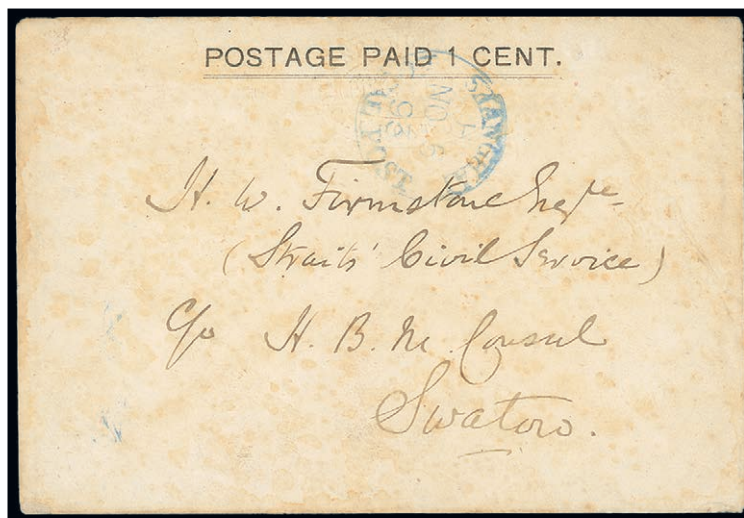 POSTAGE PAID 1 CENT.
SHANGHAI
LOCAL POST
H. W. Firmstone Esqre
(Straits' Civil Service)
c/o H. B. M. Consul
Swatow.